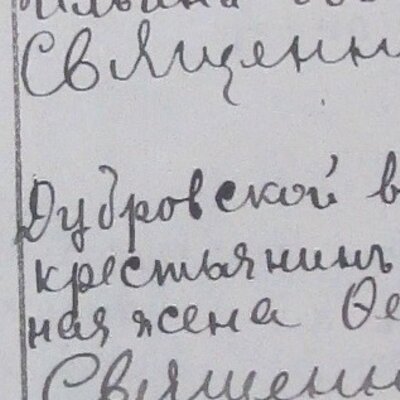 Священн
Дубровской в
крестьянинъ
ная жена Ѳе
Священн